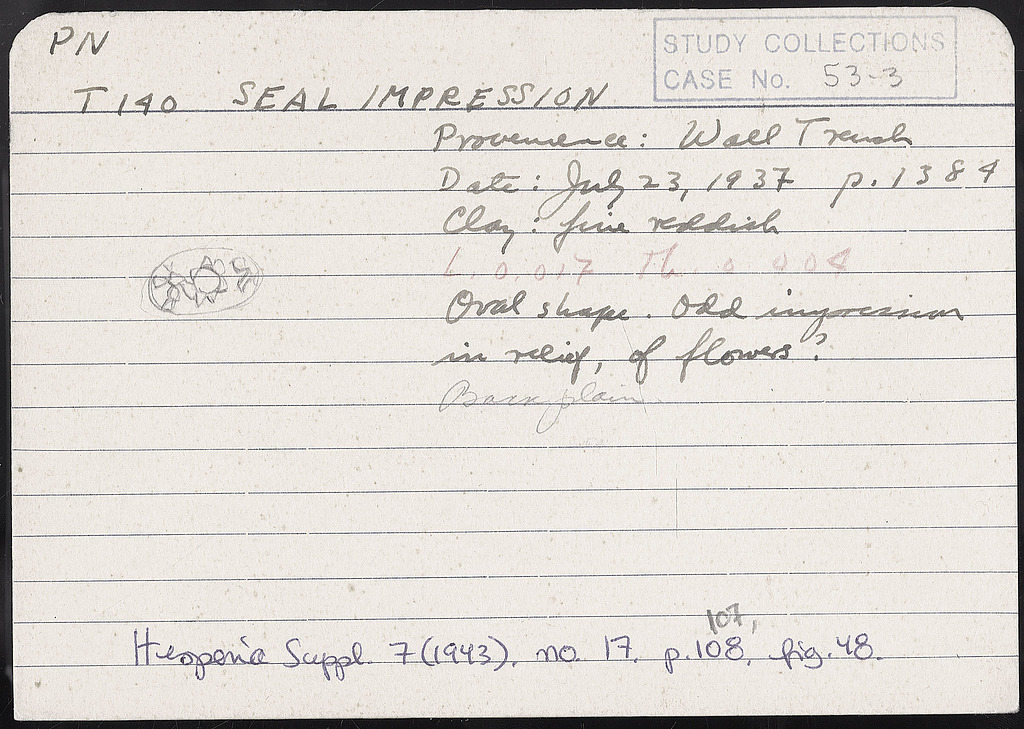 PN
STUDY COLLECTIONS
CASE No. 53-3
T 140 SEAL IMPRESSION
Provenience: Wall Trench
Date: July 23, 1937 p. 1384
Clay: fine reddish
L. 0.017 Th. 0.004
Oval shape. Odd impression
in relief, of flowers?
Back plain.
107,
Hesperia Suppl. 7 (1943), no. 17, p. 108, fig. 48.